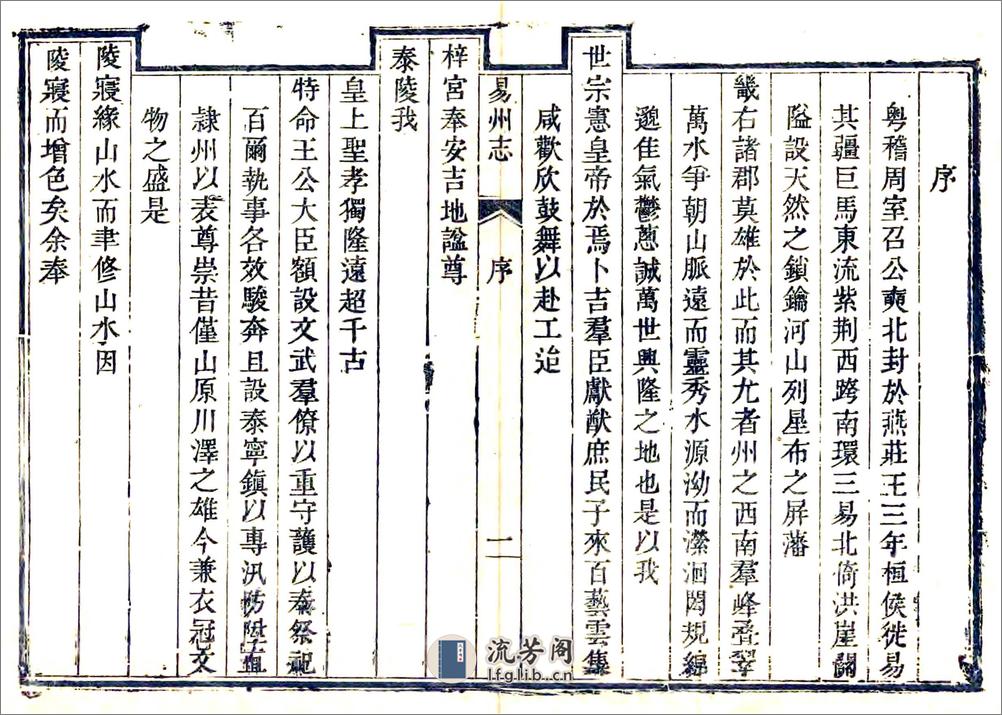 序
粤稽周室召公奭北封於燕莊王三年桓侯徙易
其疆巨馬東流紫荆西跨南環三易北倚洪崖關
隘設天然之鎖鑰河山列星布之屏藩
畿右諸郡莫雄於此而其尤者州之西南羣峰叠翠
萬水爭朝山脈遠而靈秀水源泑而瀠洄閎規綿
邈佳氣鬱蔥誠萬世興隆之地也是以我
世宗憲皇帝於焉卜吉羣臣獻猷庶民子來百藝雲集
咸歡欣鼓舞以赴工迨
易州志
序
一
梓宮奉安吉地謚尊
泰陵我
皇上聖孝獨隆遠超千古
特命王公大臣額設文武羣僚以重守護以奉祭祀
百爾執事各效駿奔且設泰寧鎮以專汛防陞直
隸州以表尊崇昔僅山原川澤之雄今兼衣冠文
物之盛是
陵寢緣山水而聿修山水因
陵寢而增色矣余奉
流芳阁
lfglib.cn